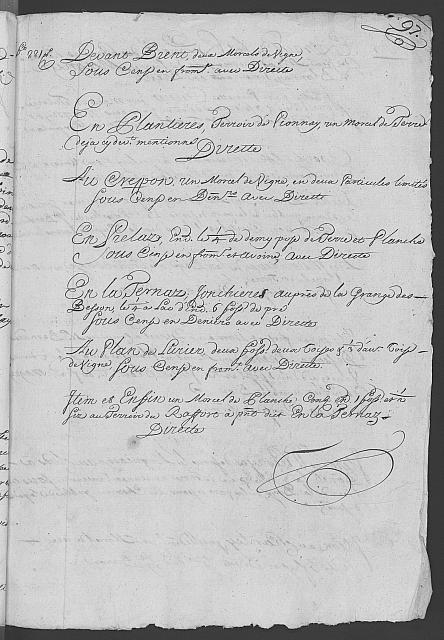 97.
Devant Brent, deux Morcels de Vigne,
Sous Cens en from.t avec Directe
En Plantieres, Terroir de Pionnay, un Morcel de Terre
deja cy dev.t mentionné
Directe
Au Crespon, un Morcel de Vigne, en deux Particules limités
Sous Cens en Den.rs avec Directe
En Prelaz, le 1/4 de demy pose de Terre et Planche
Sous Cens en from.t et avoine, avec Directe
En la Pernaz, Jonchieres auprès de la Grange des
Besson, le 1/4 à 6 foss. de pré
Sous Cens en Deniers avec Directe
Au Plan de deux foss. deux Toises & 1/2 d'aut. Tois.
de Vigne Sous Cens en from.t avec Directe
Item et Enfin un Morcel de Planche, 1 foss. et
Six au Terroir du Raffort à pnt dit En la Pernaz
Directe